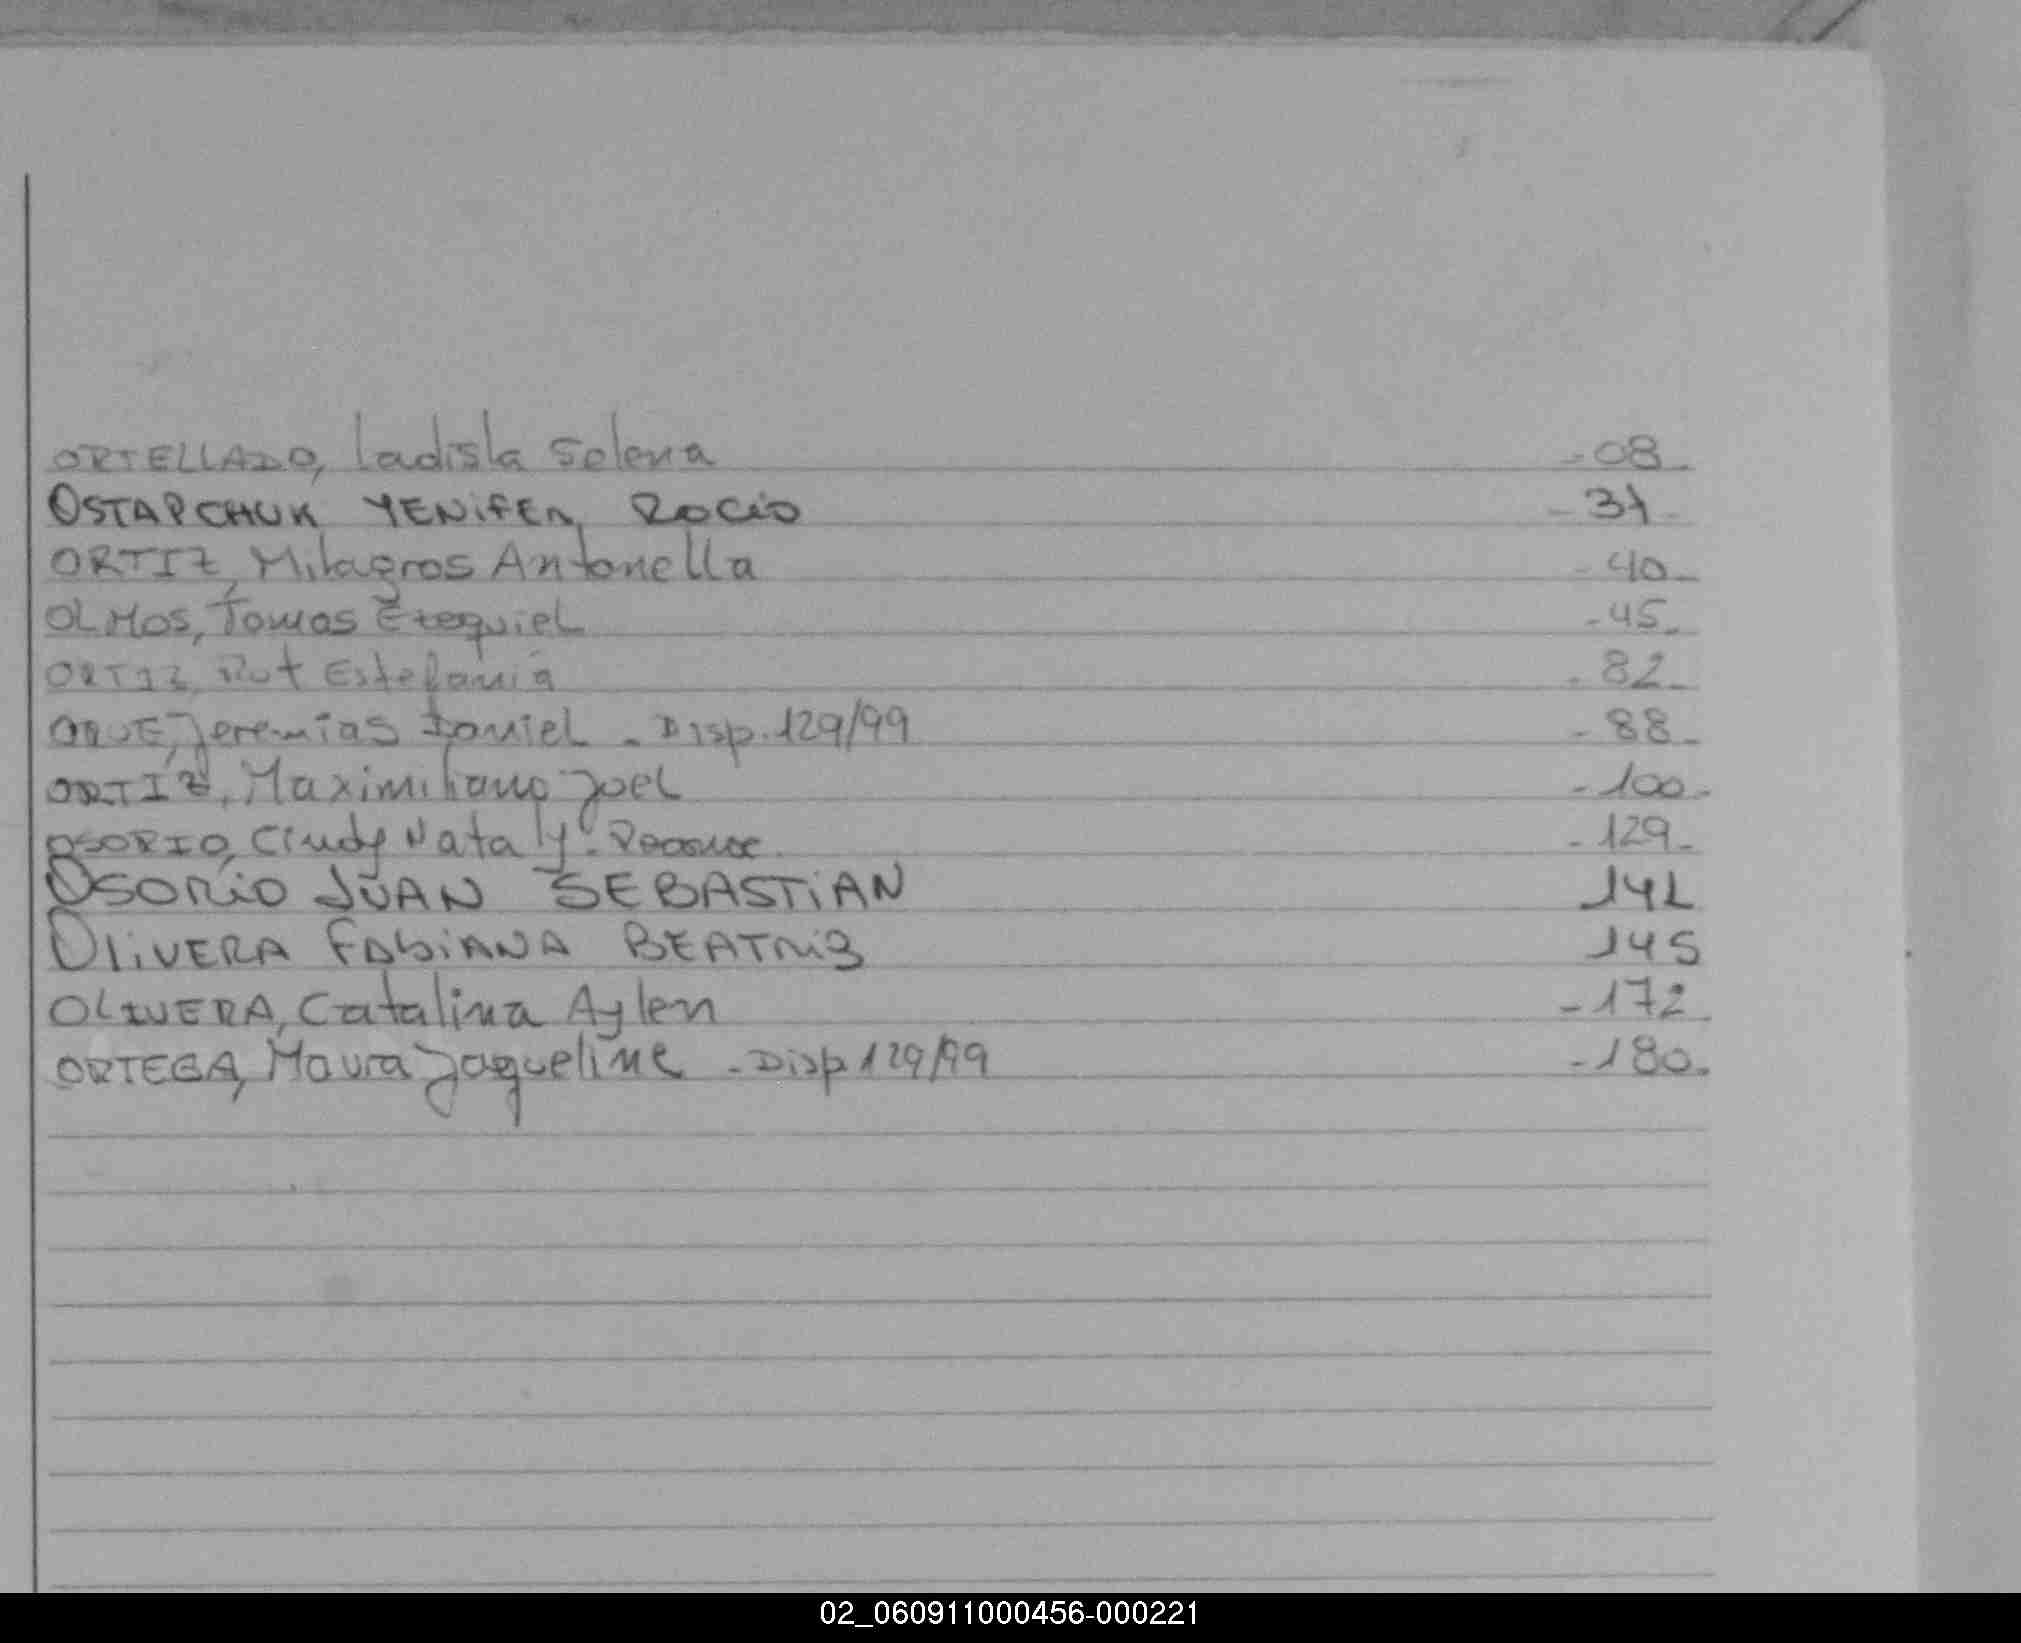 ORTELLADO, Ladisla Selena -08-
OSTAPCHUK YENIFER ROCIO -31-
ORTIZ, Milagros Antonella -40-
OLMOS, Tomas Ezequiel -45-
ORTIZ, Rut Estefania -82-
ORUE, Jeremias Daniel - Disp. 129/99 -88-
ORTIZ, Maximiliano Joel -100-
OSORIO, Cindy Nataly - -129-
OSORIO JUAN SEBASTIAN 141
OLIVERA FABIANA BEATRIZ 145
OLIVERA, Catalina Aylen -172-
ORTEGA, Maura Jaqueline - Disp 129/99 -180-
02_060911000456-000221